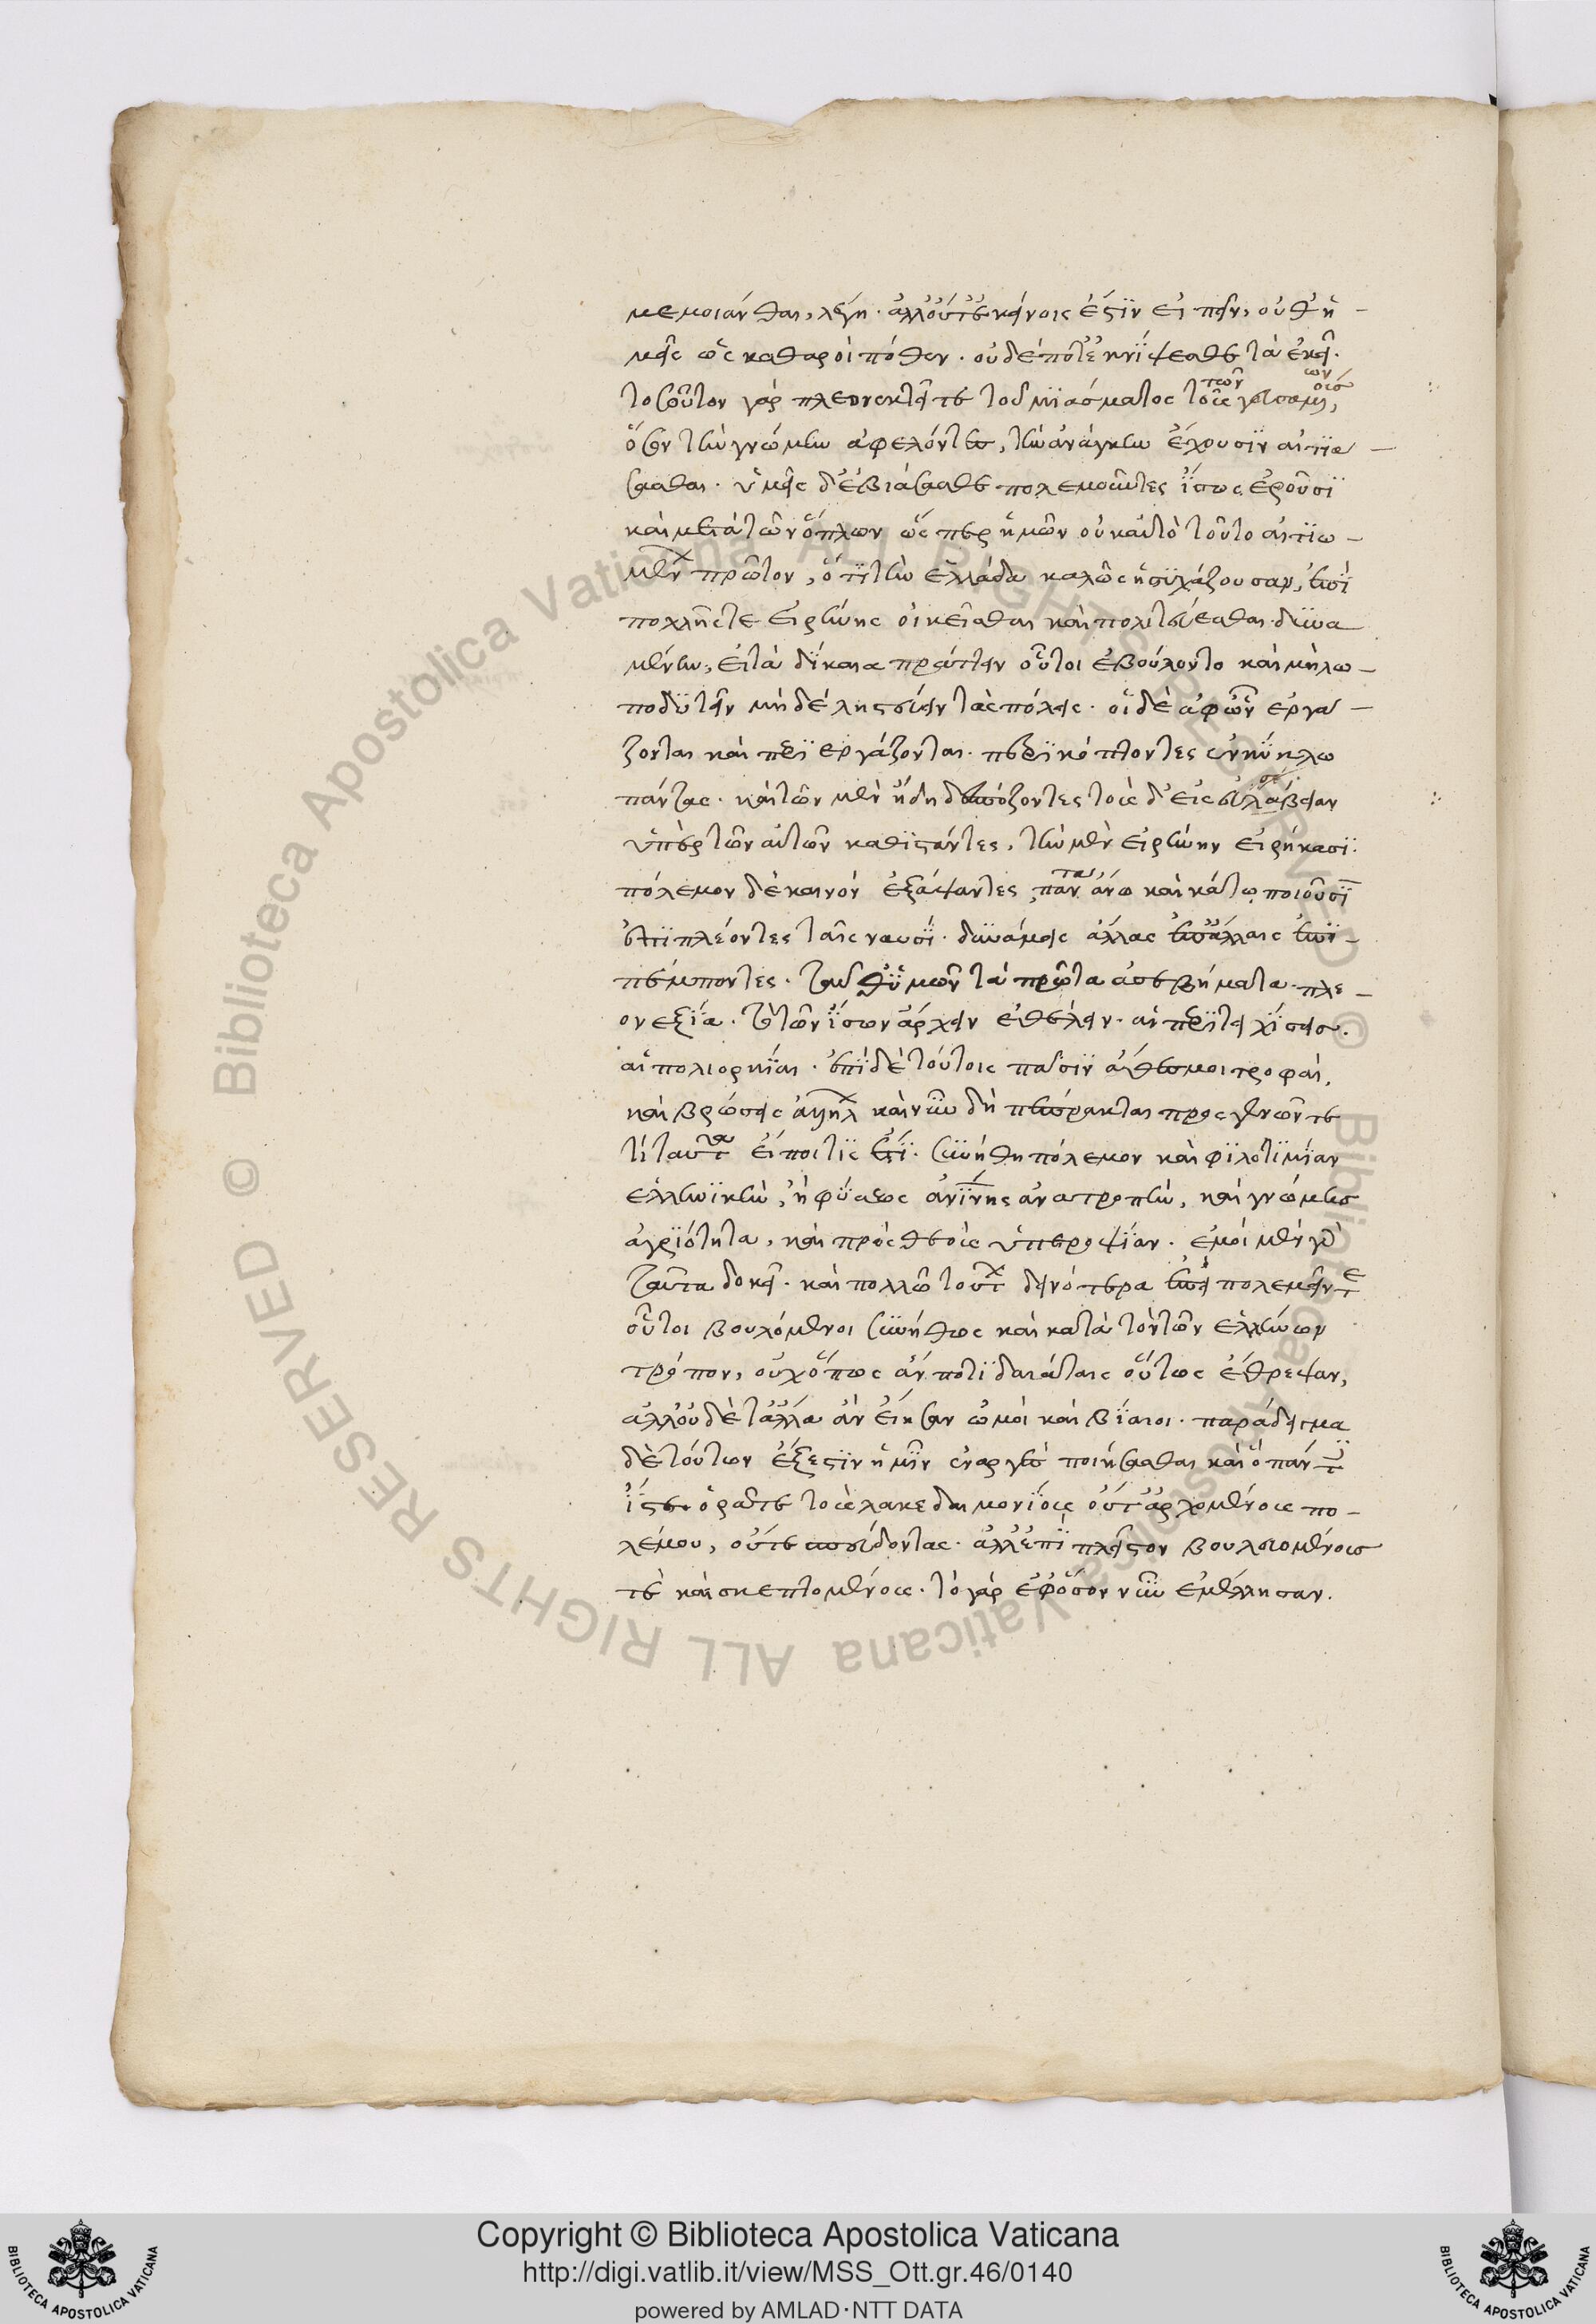 μεμοιάνθαι, λέγει. ἀλλ' οὔτ' ἐκείνοις ἔστιν εἰπεῖν, οὔθ' ἡ-
μεῖς ὡς καθαροὶ πόθεν. οὐδέποτ' ἐκνίψεσθε τὰ ἐκεῖ.
τοσοῦτον γὰρ πλεονεκτεῖτε τοῦ μιάσματος
ὅσον τὴν γνώμην ἀφελόντες, τὴν ἀνάγκην ἔχουσιν αἰτιᾶ-
σασθαι. ὑμεῖς δ' ἐβιάσασθε πολεμοῦντες ἴσως ἐροῦσι
καὶ μετὰ τῶν ὅπλων ὥσπερ ἡμῶν οὐκ αὐτὸ τοῦτο αἰτιω-
μένων πρῶτον, ὅτι τὴν ἑλλάδα καλῶς ἡσυχάζουσαν, ἐπὶ
πολλῆς τε εἰρήνης οἰκεῖσθαι καὶ πολιτεύεσθαι δυνα
μένην, εἰ τὰ δίκαια πράττειν οὗτοι ἐβούλοντο καὶ μὴ λω-
ποδυτεῖν μηδὲ ληστεύειν τὰς πόλεις. οἱ δὲ ἀφ' ὧν ἐργά-
ζονται καὶ περιεργάζονται. περικόπτοντες ἐν κύκλῳ
πάντας. καὶ τῶν μὲν ἤδη δεσπόζοντες τοῖς δ' εἰς
ὑπὲρ τῶν αὐτῶν καθιστάντες, τὴν μὲν εἰρήνην εἰρήκασι.
πόλεμον δὲ καινὸν ἐξάψαντες, πάντα ἄνω καὶ κάτω ποιοῦσι
ἐπιπλέοντες ταῖς ναυσί. δυνάμεις ἄλλας ἐπ' ἄλλαις ἐπι-
πέμποντες. ταῦθ' ὑμῶν τὰ πρῶτα ἀσεβήματα. πλε-
ονεξία. τὸ τῶν ἴσων ἄρχειν ἐθέλειν. αἱ περιτειχίσεις.
αἱ πολιορκίαι. ἐπὶ δὲ τούτοις πᾶσιν ἄθεσμοι τροφαί,
καὶ βρώσεις ἀλλήλων καὶ νῦν δὴ πέπρακται προσγενῶν τε
τί ταῦτα εἴποι τις ἔτι. συνήθη πόλεμον καὶ φιλοτιμίαν
ἑλληνικήν, ἢ φύσεως ἀνατροπήν, καὶ γνώμης
ἀγριότητα, καὶ πρὸς θεοὺς ὑπεροψίαν. ἐμοὶ μὲν γὰρ
ταῦτα δοκεῖ. καὶ πολλῷ τούτων δεινότερα ἐπεὶ πολεμεῖν τε
οὗτοι βουλόμενοι συνήθως καὶ κατὰ τὸν τῶν ἑλλήνων
τρόπον, οὐχ ὅπως ἂν ποτιδαιάταις οὕτως ἔθρεψαν,
ἀλλ' οὐδὲ τἄλλα ἂν εἴησαν ὠμοὶ καὶ βίαιοι. παράδειγμα
δὲ τούτων ἔξεστιν ἡμῖν ἐναργὲς ποιήσασθαι καὶ ὃ πάντες
ἴστε ὁρᾶτε τοὺς λακεδαιμονίους οὔτ' ἀρχομένους πο-
λέμου, οὔτε σπεύδοντας. ἀλλ' ἐπὶ πλεῖστον βουλευομένους
τε καὶ σκεπτομένους. τὸ γὰρ ἐφ' ὅσον νῦν ἐμέλλησαν.
Copyright © Biblioteca Apostolica Vaticana
http://digi.vatlib.it/view/MSS_Ott.gr.46/0140
powered by AMLAD·NTT DATA
BIBLIOTECA APOSTOLICA VATICANA
BIBLIOTECA APOSTOLICA VATICANA
© Biblioteca Apostolica Vaticana ALL RIGHTS RESERVED © Biblioteca Apostolica Vaticana ALL RIGHTS RESERVED